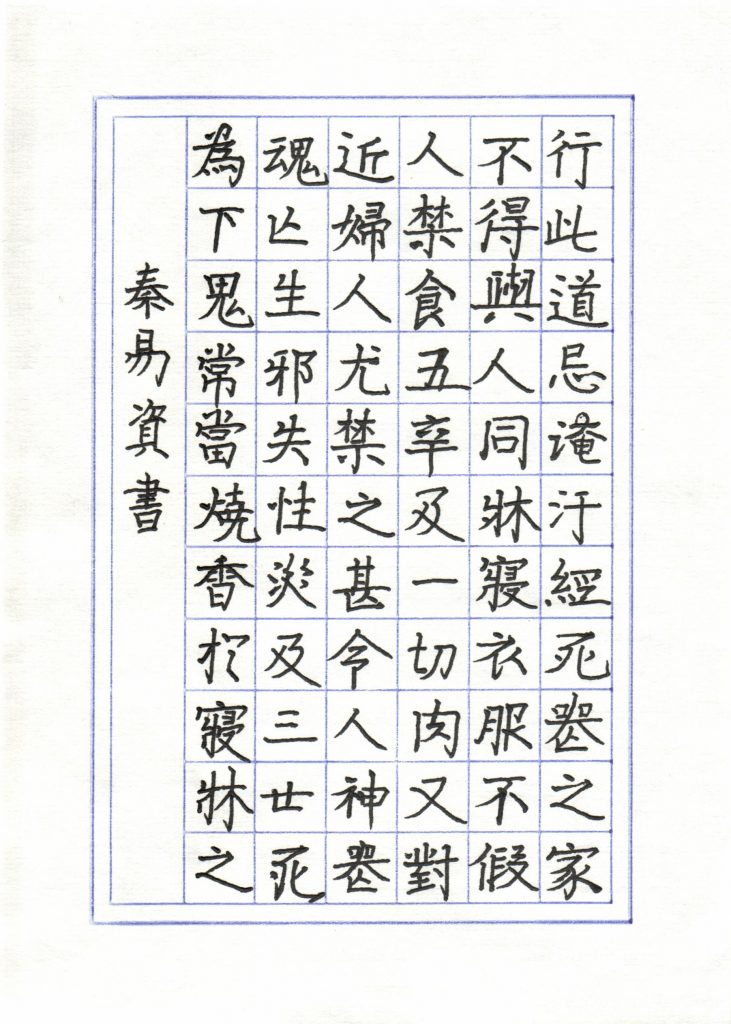 行此道忌淹汙經死喪之家
不得與人同牀寢衣服不假
人禁食五辛及一切肉又對
近婦人尤禁之甚令人神喪
魂亾生邪失性災及三世死
為下鬼常當燒香於寢牀之
秦易資書